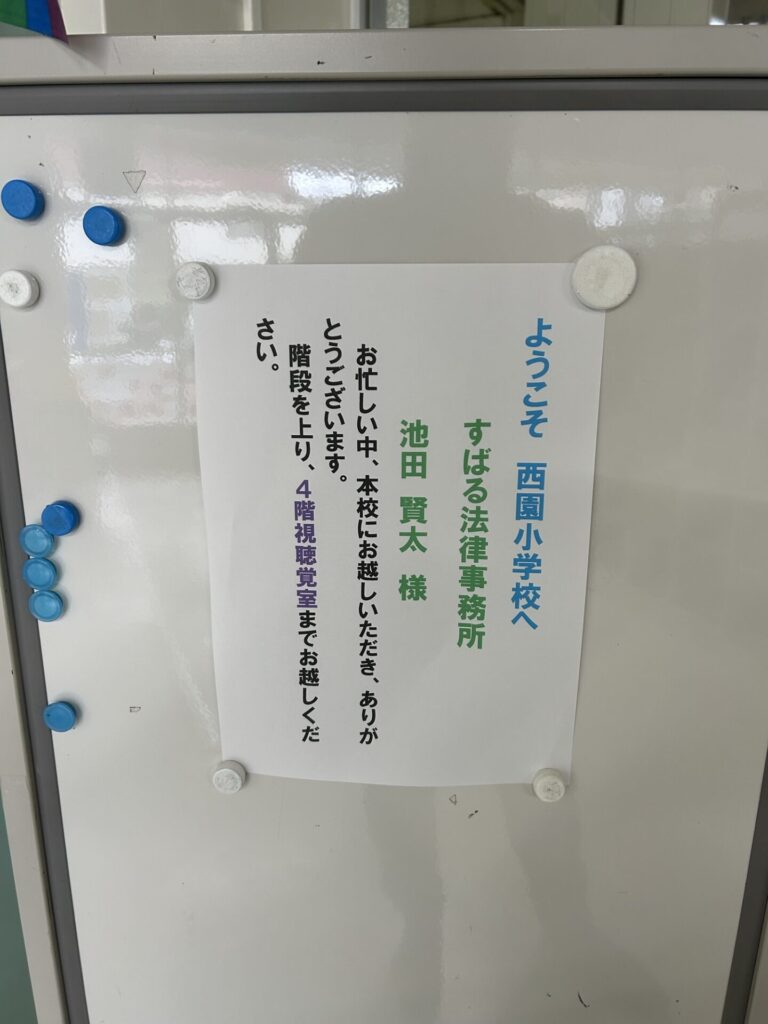 ようこそ 西園小学校へ
すばる法律事務所
池田 賢太 様
お忙しい中、本校にお越しいただき、ありが
とうございます。
階段を上り、4階視聴覚室までお越しくだ
さい。